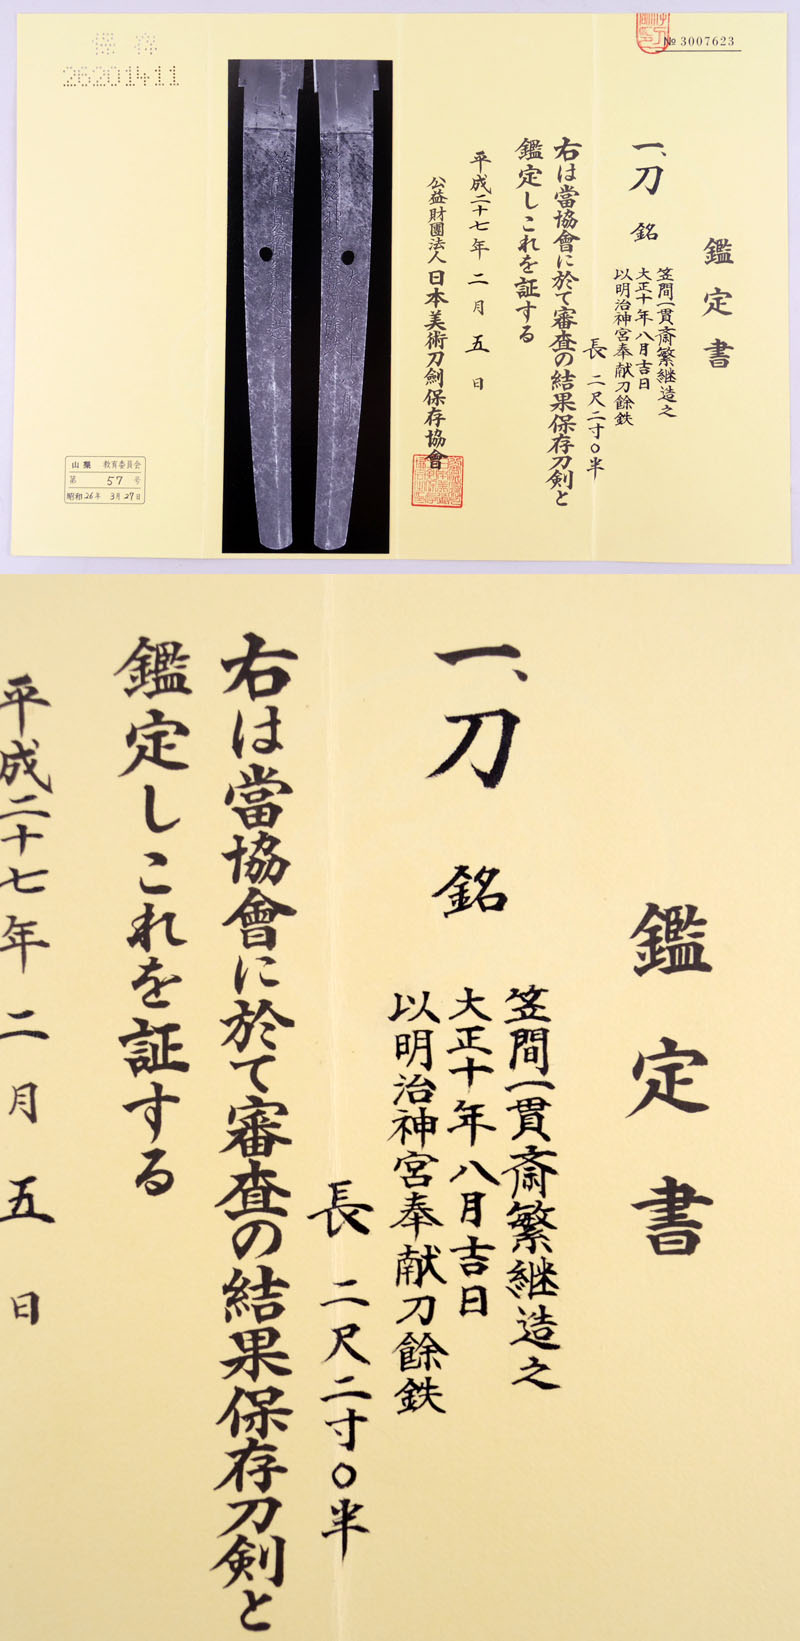 № 3007623
鑑定書
一、刀 銘
笠間一貫斎繁継造之
大正十年八月吉日
以明治神宮奉献刀餘鉄
長 二尺二寸〇半
右は當協會に於て審査の結果保存刀剣と
鑑定しこれを証する
平成二十七年 二月 五日
公益財團法人 日本美術刀劍保存協會
保存
26201411
山梨 教育委員会
第 57 号
昭和26年 3月27日
鑑定書
一、刀 銘
笠間一貫斎繁継造之
大正十年八月吉日
以明治神宮奉献刀餘鉄
長 二尺二寸〇半
右は當協會に於て審査の結果保存刀剣と
鑑定しこれを証する
平成二十七年 二月 五日